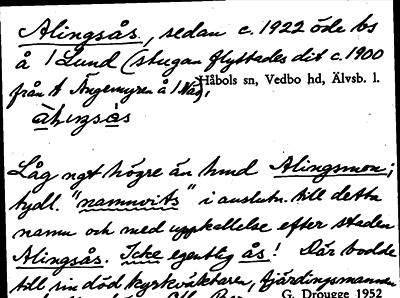 Alingsås, sedan c. 1922 öde bs
å 1 Lund (stugan flyttades dit c. 1900
från Ängemyren å 1 Näs,
Håbols sn, Vedbo hd, Älvsb. l.
Låg ngt högre än hmd Alingsmon;
tydl. "namnvits" i anslutn. till detta
namn och med uppkallelse efter staden
Alingsås. Icke egentlig ås! Där bodde
till sin död kyrkväktaren, fjärdingsmannen
G. Drougge 1952